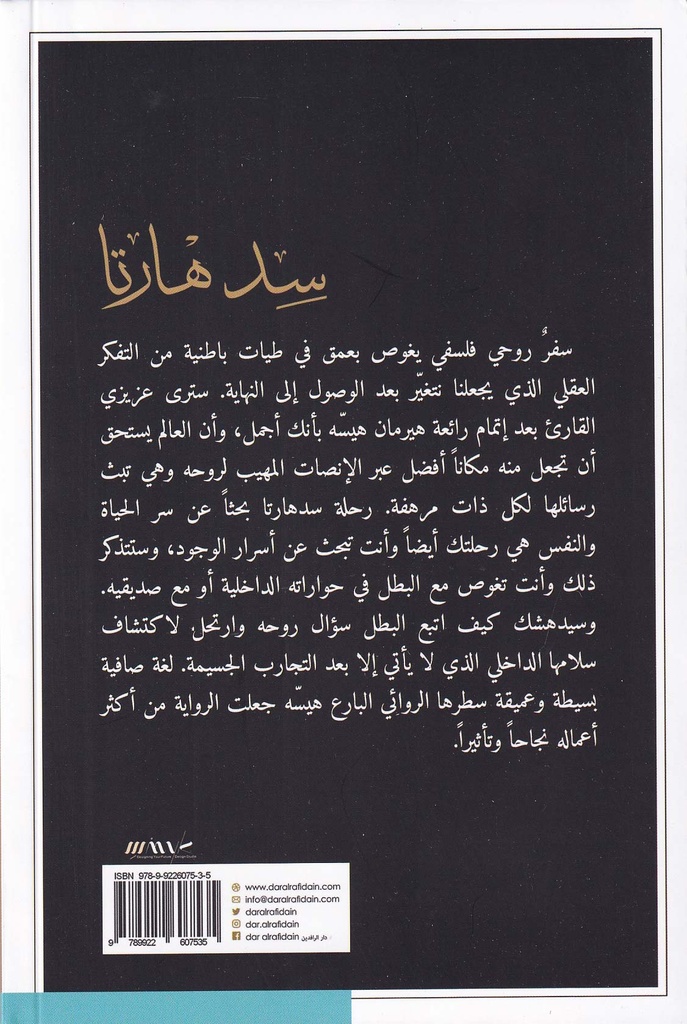 سِدهارتا
سفرٌ روحي فلسفي يغوص بعمق في طيات باطنية من التفكر
العقلي الذي يجعلنا نتغيّر بعد الوصول إلى النهاية. سترى عزيزي
القارئ بعد إتمام رائعة هيرمان هيسّه بأنك أجمل، وأن العالم يستحق
أن تجعل منه مكاناً أفضل عبر الإنصات المهيب لروحه وهي تبث
رسائلها لكل ذات مرهفة. رحلة سدهارتا بحثاً عن سر الحياة
والنفس هي رحلتك أيضاً وأنت تبحث عن أسرار الوجود، وستتذكر
ذلك وأنت تغوص مع البطل في حواراته الداخلية أو مع صديقيه.
وسيدهشك كيف اتبع البطل سؤال روحه وارتحل لاكتشاف
سلامها الداخلي الذي لا يأتي إلا بعد التجارب الجسيمة. لغة صافية
بسيطة وعميقة سطرها الروائي البارع هيسّه جعلت الرواية من أكثر
أعماله نجاحاً وتأثيراً.
ISBN 978-9-9226075-3-5
9 789922 607535
www.daralrafidain.com
info@daralrafidain.com
daralrafidain
dar.alrafidain
dar alrafidain دار الرافدين